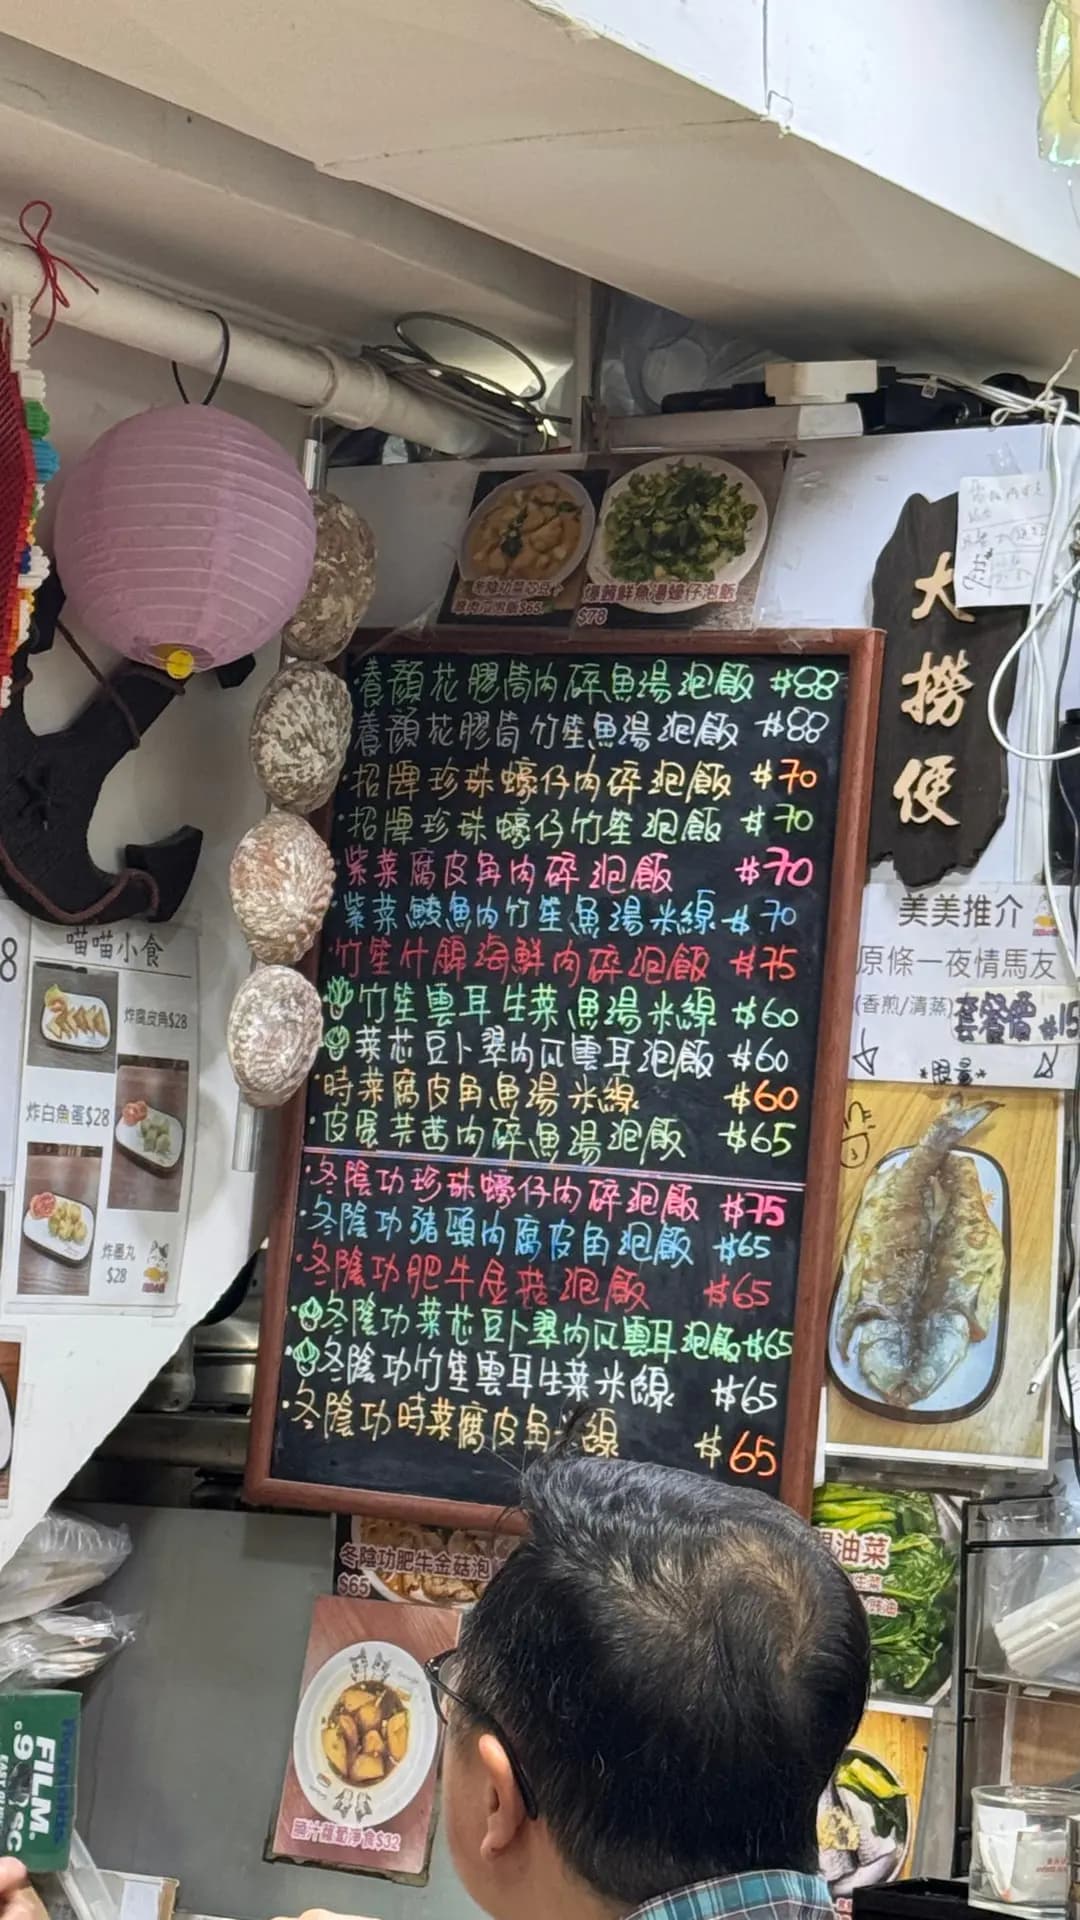 冬陰功菜芯豆卜
翠肉瓜泡飯$65
爆鍾鮮魚湯蠔仔泡飯
$78
養顏花膠筒肉碎魚湯泡飯 #88
養顏花膠筒竹笙魚湯泡飯 #88
·招牌珍珠蠔仔肉碎泡飯 #70
·招牌珍珠蠔仔竹笙泡飯 #70
·紫菜腐皮角肉碎泡飯 #70
·紫菜鯪魚肉竹笙魚湯米線 #70
·竹笙什錦海鮮肉碎泡飯 #75
竹笙雲耳生菜魚湯米線 #60
菜芯豆卜翠肉瓜雲耳泡飯 #60
·時菜腐皮角魚湯米線 #60
·皮蛋芫茜肉碎魚湯泡飯 #65
·冬陰功珍珠蠔仔肉碎泡飯 #75
·冬陰功豬頸肉腐皮角泡飯 #65
·冬陰功肥牛金菇泡飯 #65
·冬陰功菜芯豆卜翠肉瓜雲耳泡飯 #65
·冬陰功竹笙雲耳生菜米線 #65
·冬陰功時菜腐皮角米線 #65
大撈便
美美推介
原條一夜情馬友
(香煎/清蒸)套餐價 #15
*限量*
8
喵喵小食
炸腐皮角$28
炸白魚蛋$28
炸墨丸
$28
冬陰功肥牛金菇泡
$65
油菜
生菜
蠔油
蘿蔔淨食$32
FILM.